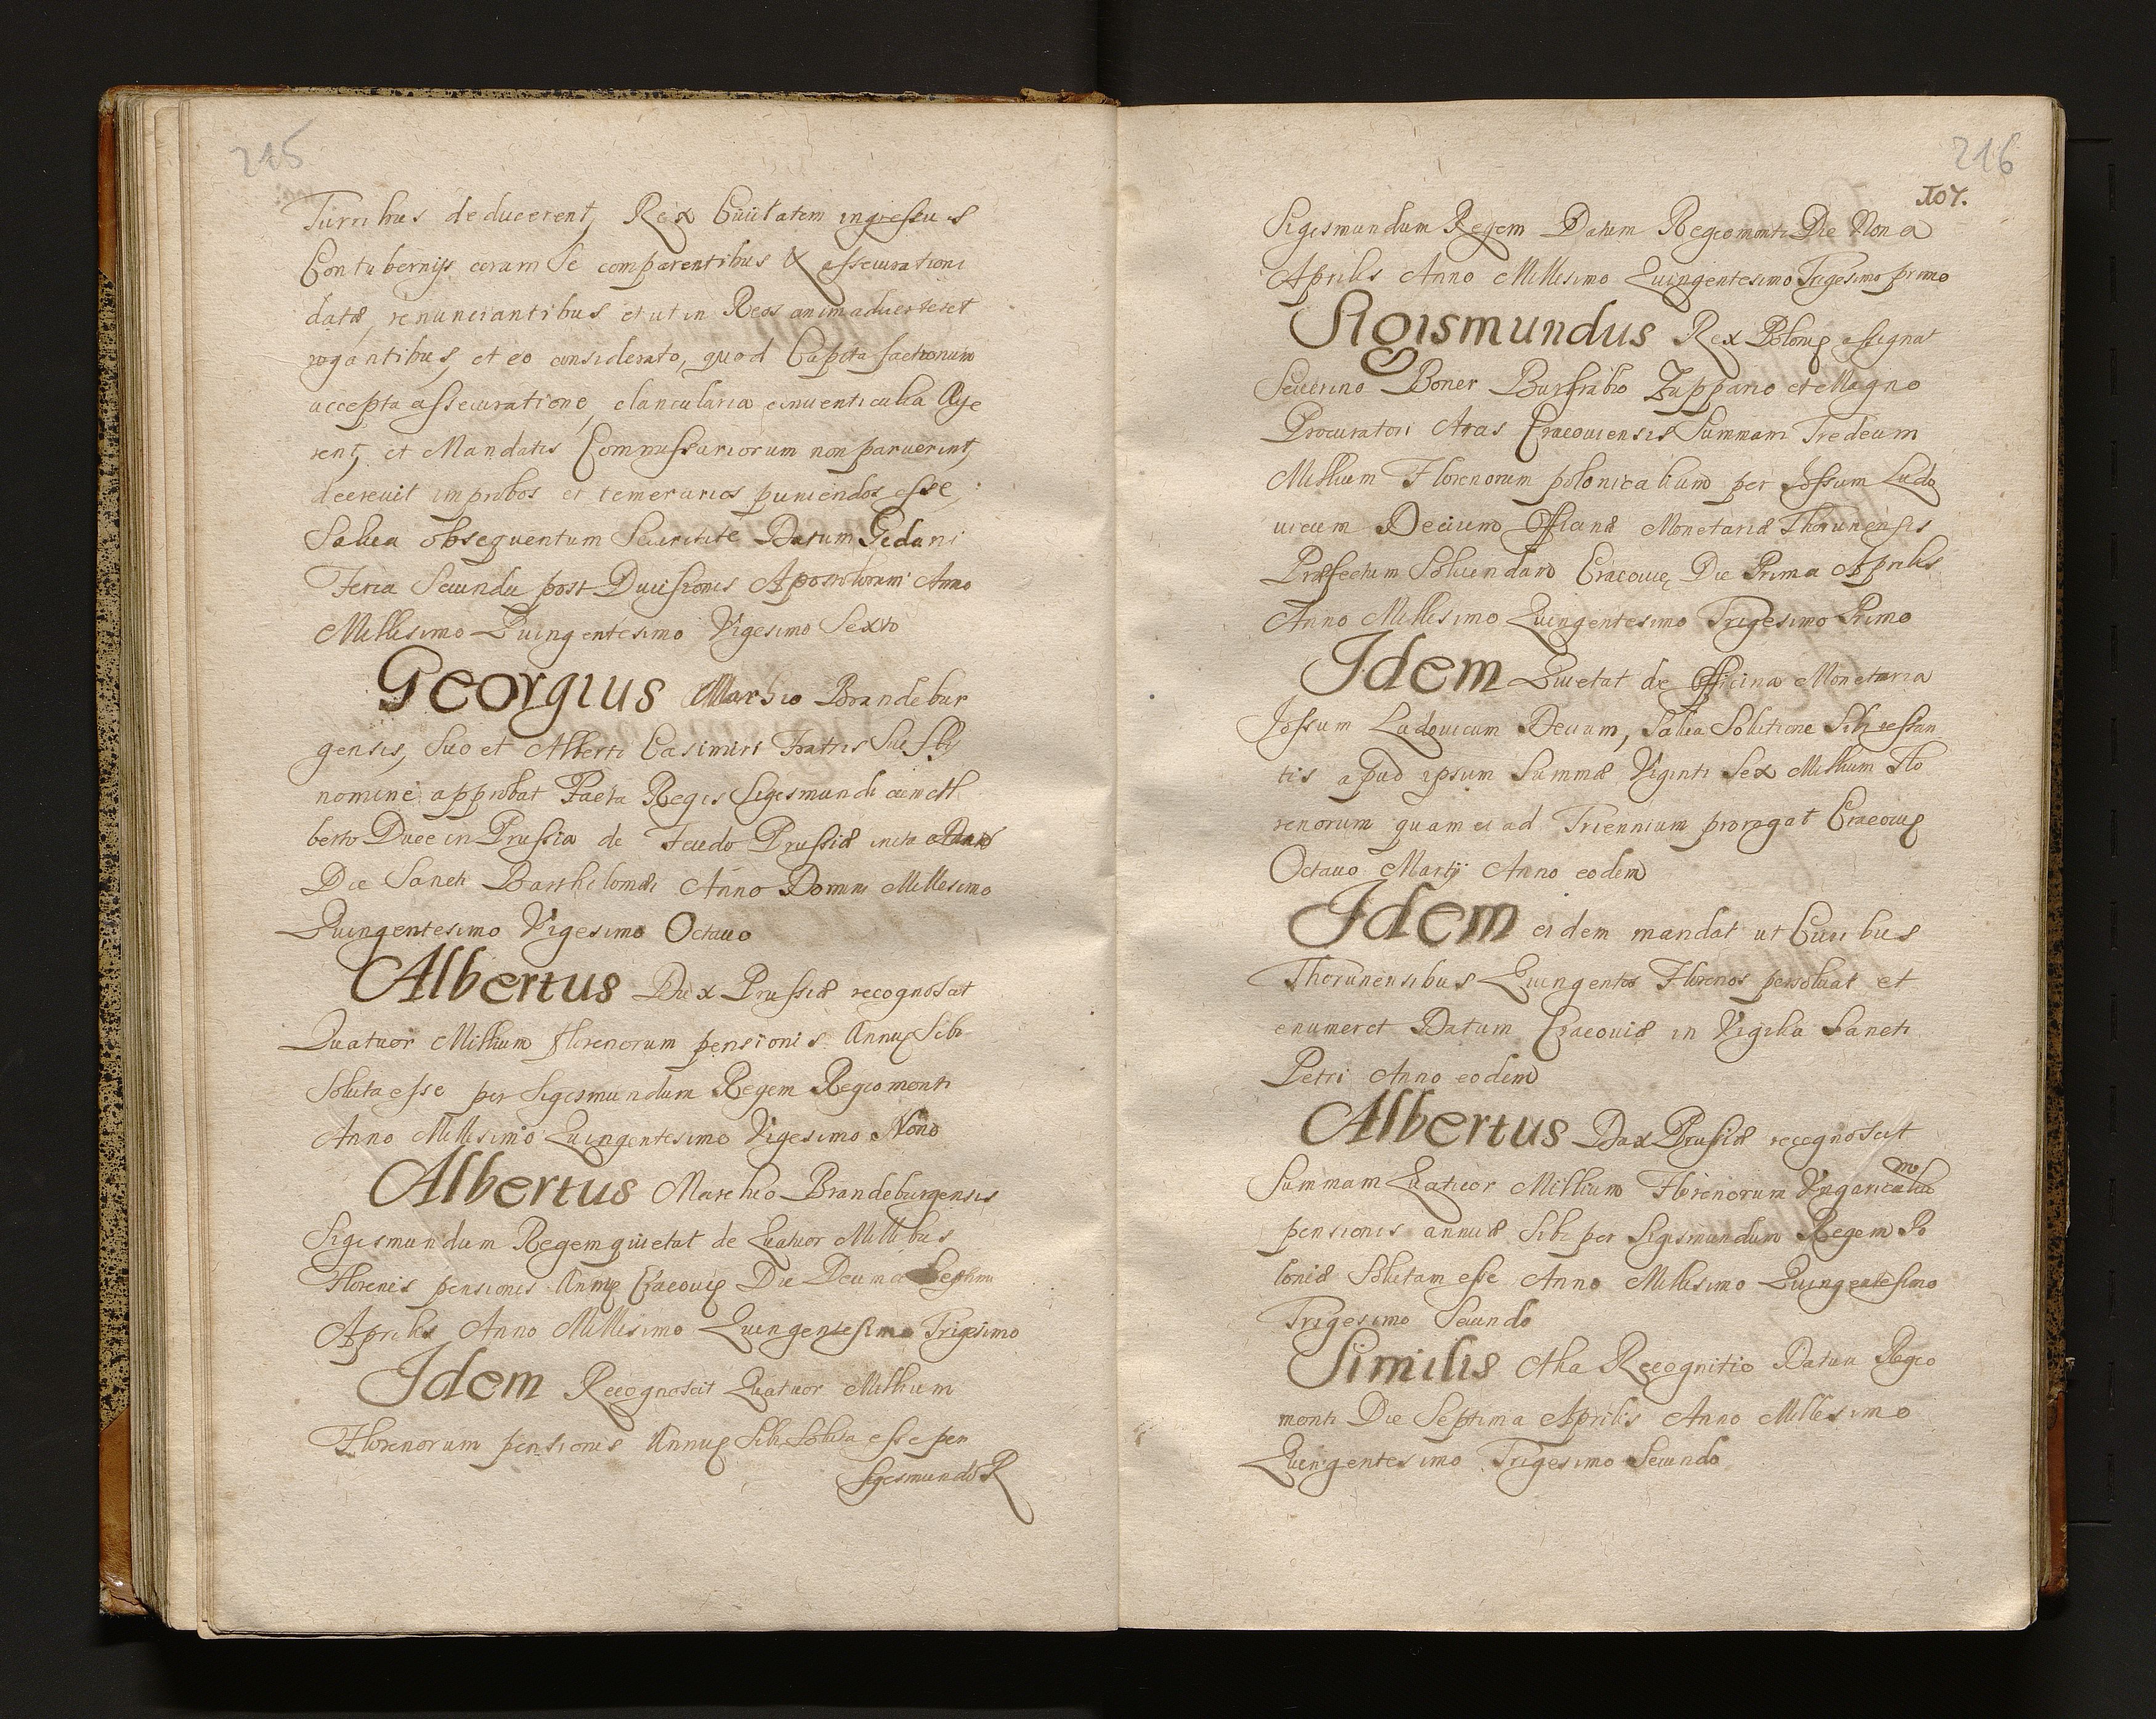 215
Turribus deducerent, Rex Ciuitatem ingressus
Contubernijs coram Se comparentibus & assecurationi
datæ, renunciantibus et ut in Reos animaduerteret
rogantibus, et eo considerato, quod Capita factionum
accepta assecuratione, clancularia conuenticula Age
rent, et Mandatis Commissariorum non paruerint,
decreuit improbos et temerarios puniendos esse,
Salua obsequentum Securitate Datum Gedani
Feria Secunda post Diuisionis Apostolorum Anno
Millesimo Quingentesimo Vigesimo Sexto
Georgius Marchio Brandebur
gensis, Suo et Alberti Casimiri Fratris Sui filij
nomine approbat Pacta Regis Sigismundi cum Al
berto Duce in Prussia de Feudo Prussiæ inita
Die Sancti Barthilomæi Anno Domini Millesimo
Quingentesimo Vigesimo Octauo
Albertus Dux Prussiæ recognoscit
Quatuor Millium florenorum pensionis Annuę Sibi
Soluta esse per Sigismundum Regem Regiomonti
Anno Millesimo Quingentesimo Vigesimo Nono
Albertus Marchio Brandeburgensis
Sigismundum Regem quietat de Quatuor Millibus
Florenis pensionis Annuę Cracouię Die Decima Septima
Aprilis Anno Millesimo Quingentesimo Trigesimo
Idem Recognoscit Quatuor Millium
Florenorum pensionis Annuę Sibi Soluta esse per
Sigismundū R
216
107.
Sigismundum Regem Datum Regiomonti Die Nona
Aprilis Anno Millesimo Quingentesimo Trigesimo primo
Sigismundus Rex Polonię assignat
Seuerino Boner Burkrabio Zuppario et Magno
Procuratori Cracouiensis Summam Tredecim
Millium Florenorum polonicalium per Jossum Ludo
uicum Decium Officinæ Monetariæ Thorunensis
Præfectum Soluendam Cracouię Die Prima Aprilis
Anno Millesimo Quingentesimo Trigesimo Primo
Idem Quietat de Officina Monetaria
Jossum Ludouicum Decium, Salua Solutione Sibi restan
tis apud ipsum Summæ Viginti Sex Millium Flo
renorum quam ei ad Triennium prorogat Cracouię
Octauo Martij Anno eodem
Idem eidem mandat ut Ciuibus
Thorunensibus Quingentos Florenos persoluat et
enumeret Datum Cracouiæ in Vigilia Sancti
Petri Anno eodem
Albertus Dux Prussiæ recognoscit
Summam Quatuor Millium Florenorum Vngaricaliu
m
pensionis annuæ Sibi per Sigismundum Regem Po
loniæ Solutam esse Anno Millesimo Quingentesimo
Trigesimo Secundo
Similis Alia Recognitio Datum Regio
monti Die Septima Aprilis Anno Millesimo
Quingentesimo Trigesimo Secundo